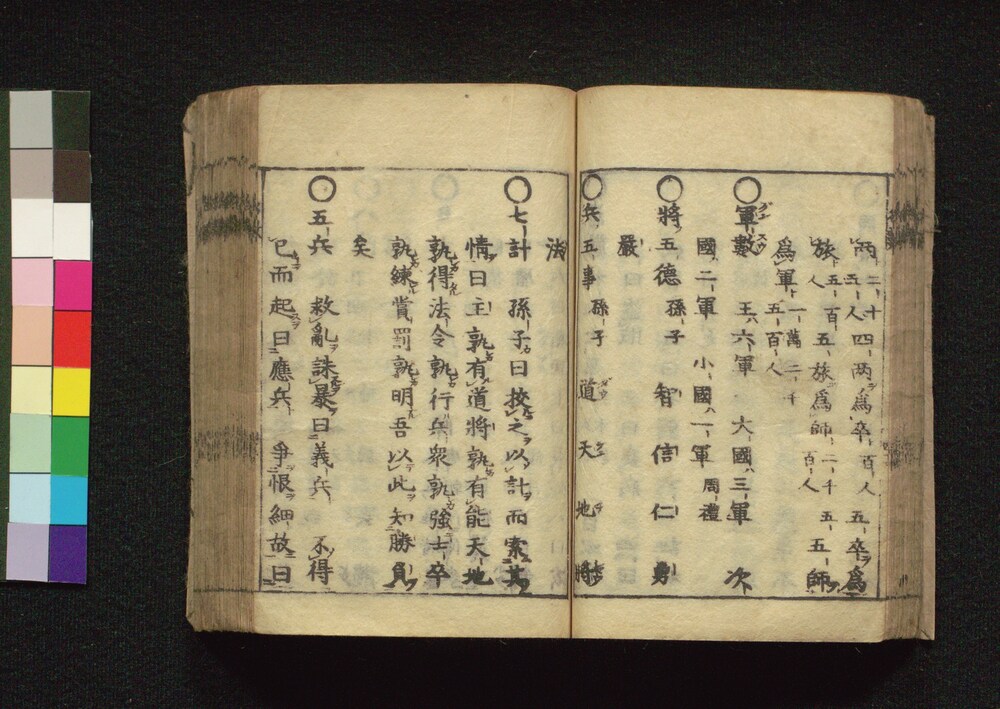 兩二十四兩爲卒百人五卒爲
五人
旅五百五旅爲師二千五師
人百人
爲軍一萬二千
五百人
軍數 王六軍 大國三軍 次
國二軍 小國一軍 周禮
將五德 孫子 智 信 仁 勇
嚴
兵五事 孫子 道 天 地 將
法
七計 孫子曰挍之以計而索其
情曰主孰有道將孰有能天地
孰得法令孰行兵衆孰強士卒
孰練賞罰孰明吾以此知勝負
矣
五兵 救亂誅暴曰義兵 不得
已而起曰應兵 爭恨細故曰